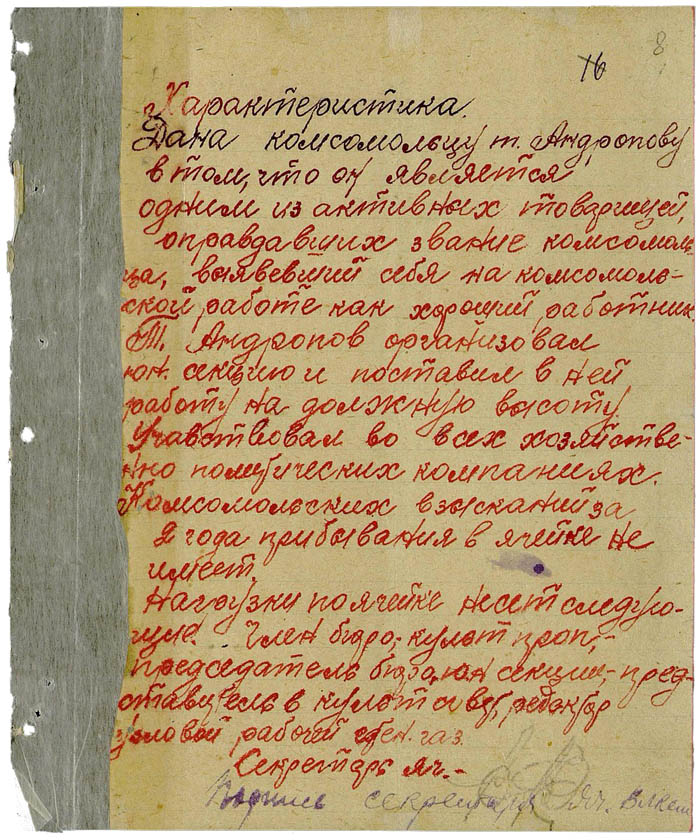 16 8
Характеристика.
Дана комсомольцу т. Андропову
в том, что он является
одним из активных товарищей,
оправдавших звание комсомоль-
ца, выявевший себя на комсомоль-
ской работе как хороший работник.
Т. Андропов организовал
юн. секцию и поставил в ней
работу на должную высоту.
Учавствовал во всех хозяйстве-
нно политических компаниях.
Комсомольских взысканий за
2 года прибывания в ячейке не
имеет.
Нагрузки по ячейке несет следую-
щие. Член бюро; культ проп,-
председатель бюро, юн секции; пред-
ставитель в культ совет, редактор
узловой рабочей стен. газ.
Секретарь яч.-
Подпись секретаря яч. ВЛКСМ